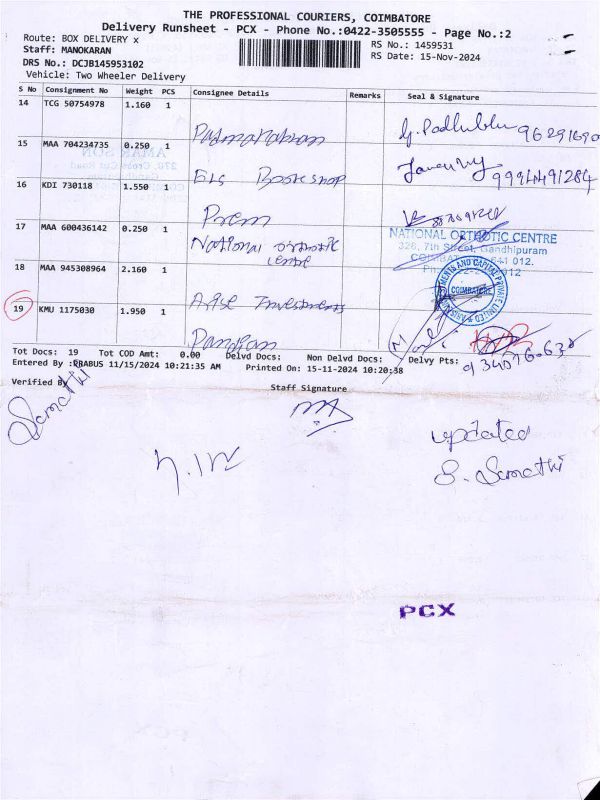 THE PROFESSIONAL COURIERS, COIMBATORE
Delivery Runsheet - PCX - Phone No.:0422-3505555 - Page No.:2
Route: BOX DELIVERY x
RS No.: 1459531
Staff: MANOKARAN
RS Date: 15-Nov-2024
DRS No.: DCJB145953102
Vehicle: Two Wheeler Delivery
S No Consignment No Weight PCS Consignee Details Remarks Seal & Signature
14 TCG 50754978 1.160 1 Padmanaban
15 MAA 704234735 0.250 1 Els Bookshop 9994491284
16 KDI 730118 1.550 1 Prem
17 MAA 600436142 0.250 1 National orthotic centre
NATIONAL ORTHOTIC CENTRE
328, 7th Street, Gandhipuram
18 MAA 945308964 2.160 1 Arise Investments
COIMBATORE
19 KMU 1175030 1.950 1
Tot Docs: 19 Tot COD Amt: 0.00 Delvd Docs: Non Delvd Docs: Delvy Pts:
Entered By :PRABUS 11/15/2024 10:21:35 AM Printed On: 15-11-2024 10:20:38
Verified By
Staff Signature
updated
S. Semathi
PCX